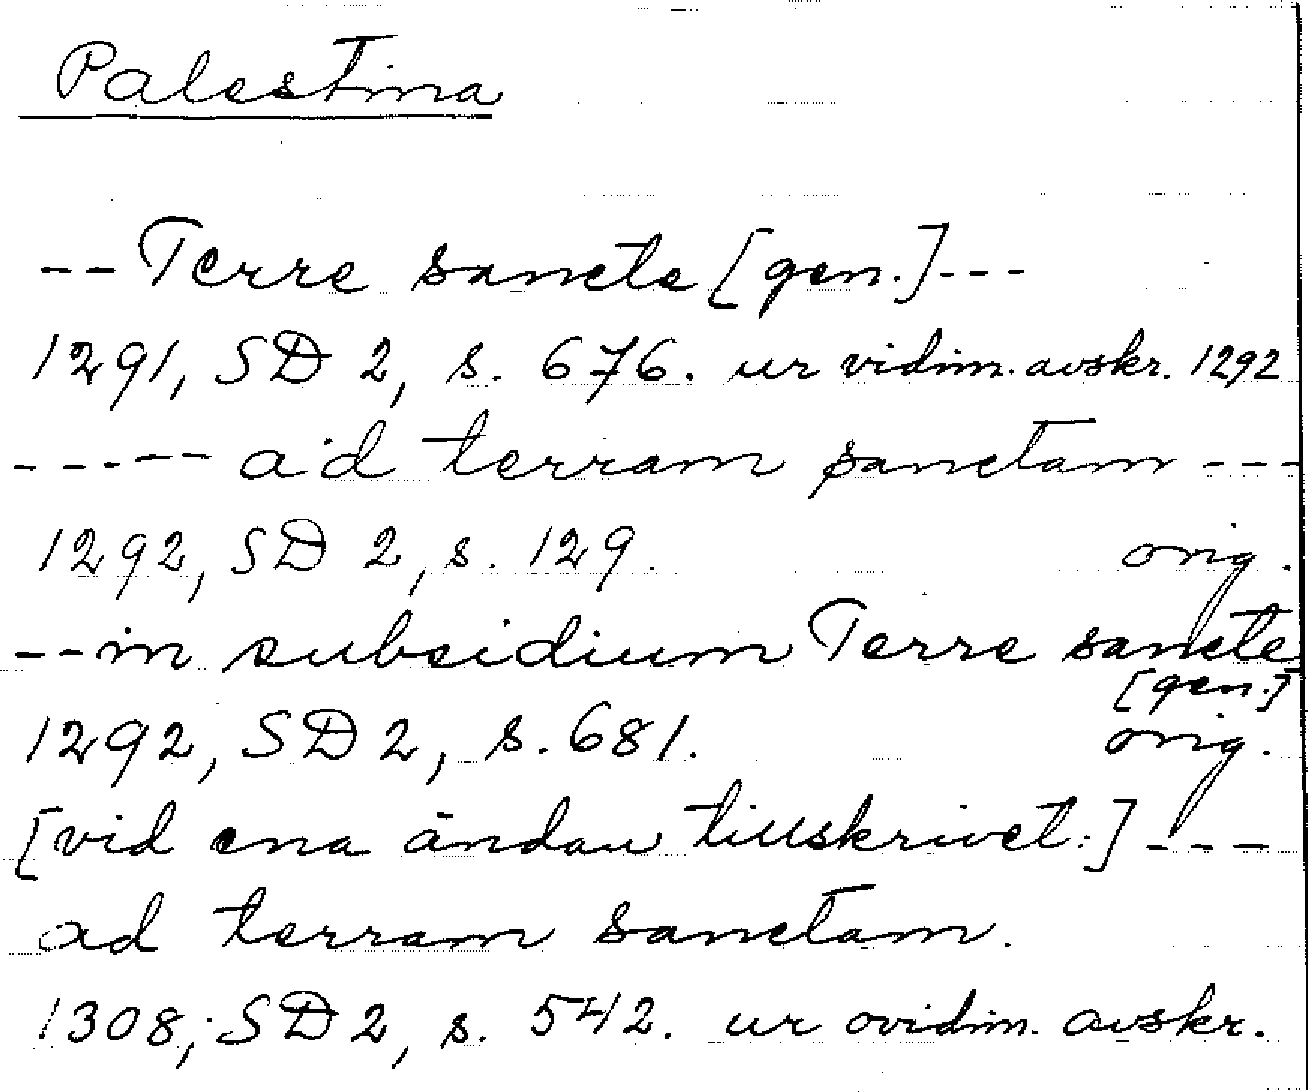 Palestina
-- Terre sancte [gen.] ---
1291, SD 2, s. 676. ur vidim. avskr. 1292
----- ad terram sanctam ---
1292, SD 2, s. 129. orig.
-- in subsidium Terre sancte
[gen.]
1292, SD 2, s. 681. orig.
[vid ena ändan tillskrivet:] ---
ad terram sanctam.
1308, SD 2, s. 542. ur ovidim. avskr.